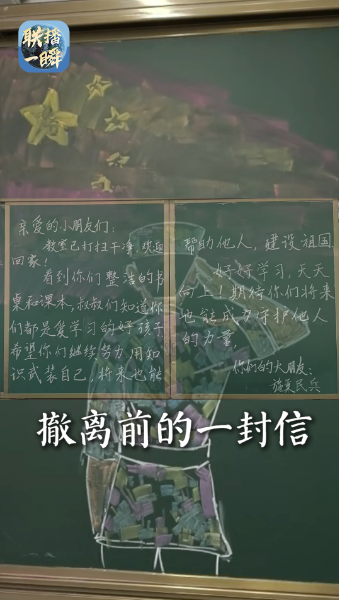 联播
一瞬
亲爱的小朋友们：
教室已打扫干净，欢迎
回家！
看到你们整洁的书
桌和课本，叔叔们知道你
们都是爱学习的好孩子
希望你们继续努力，用知
识武装自己，将来也能
帮助他人，建设祖国
好好学习，天天
向上！期待你们将来
也能成为守护他人
的力量。
你们的大朋友：
民兵
撤离前的一封信